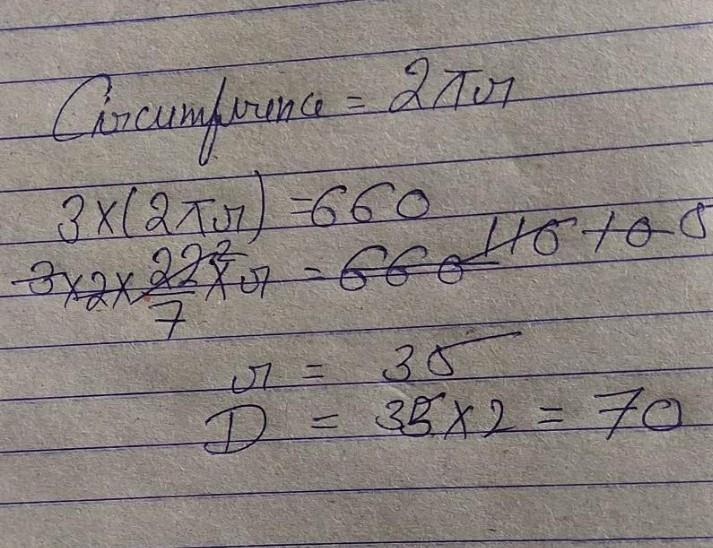 Circumference = 2πr
3×(2πr) = 660
3×2×22/7×r = 660 110 10 5
r = 35
D = 35×2 = 70